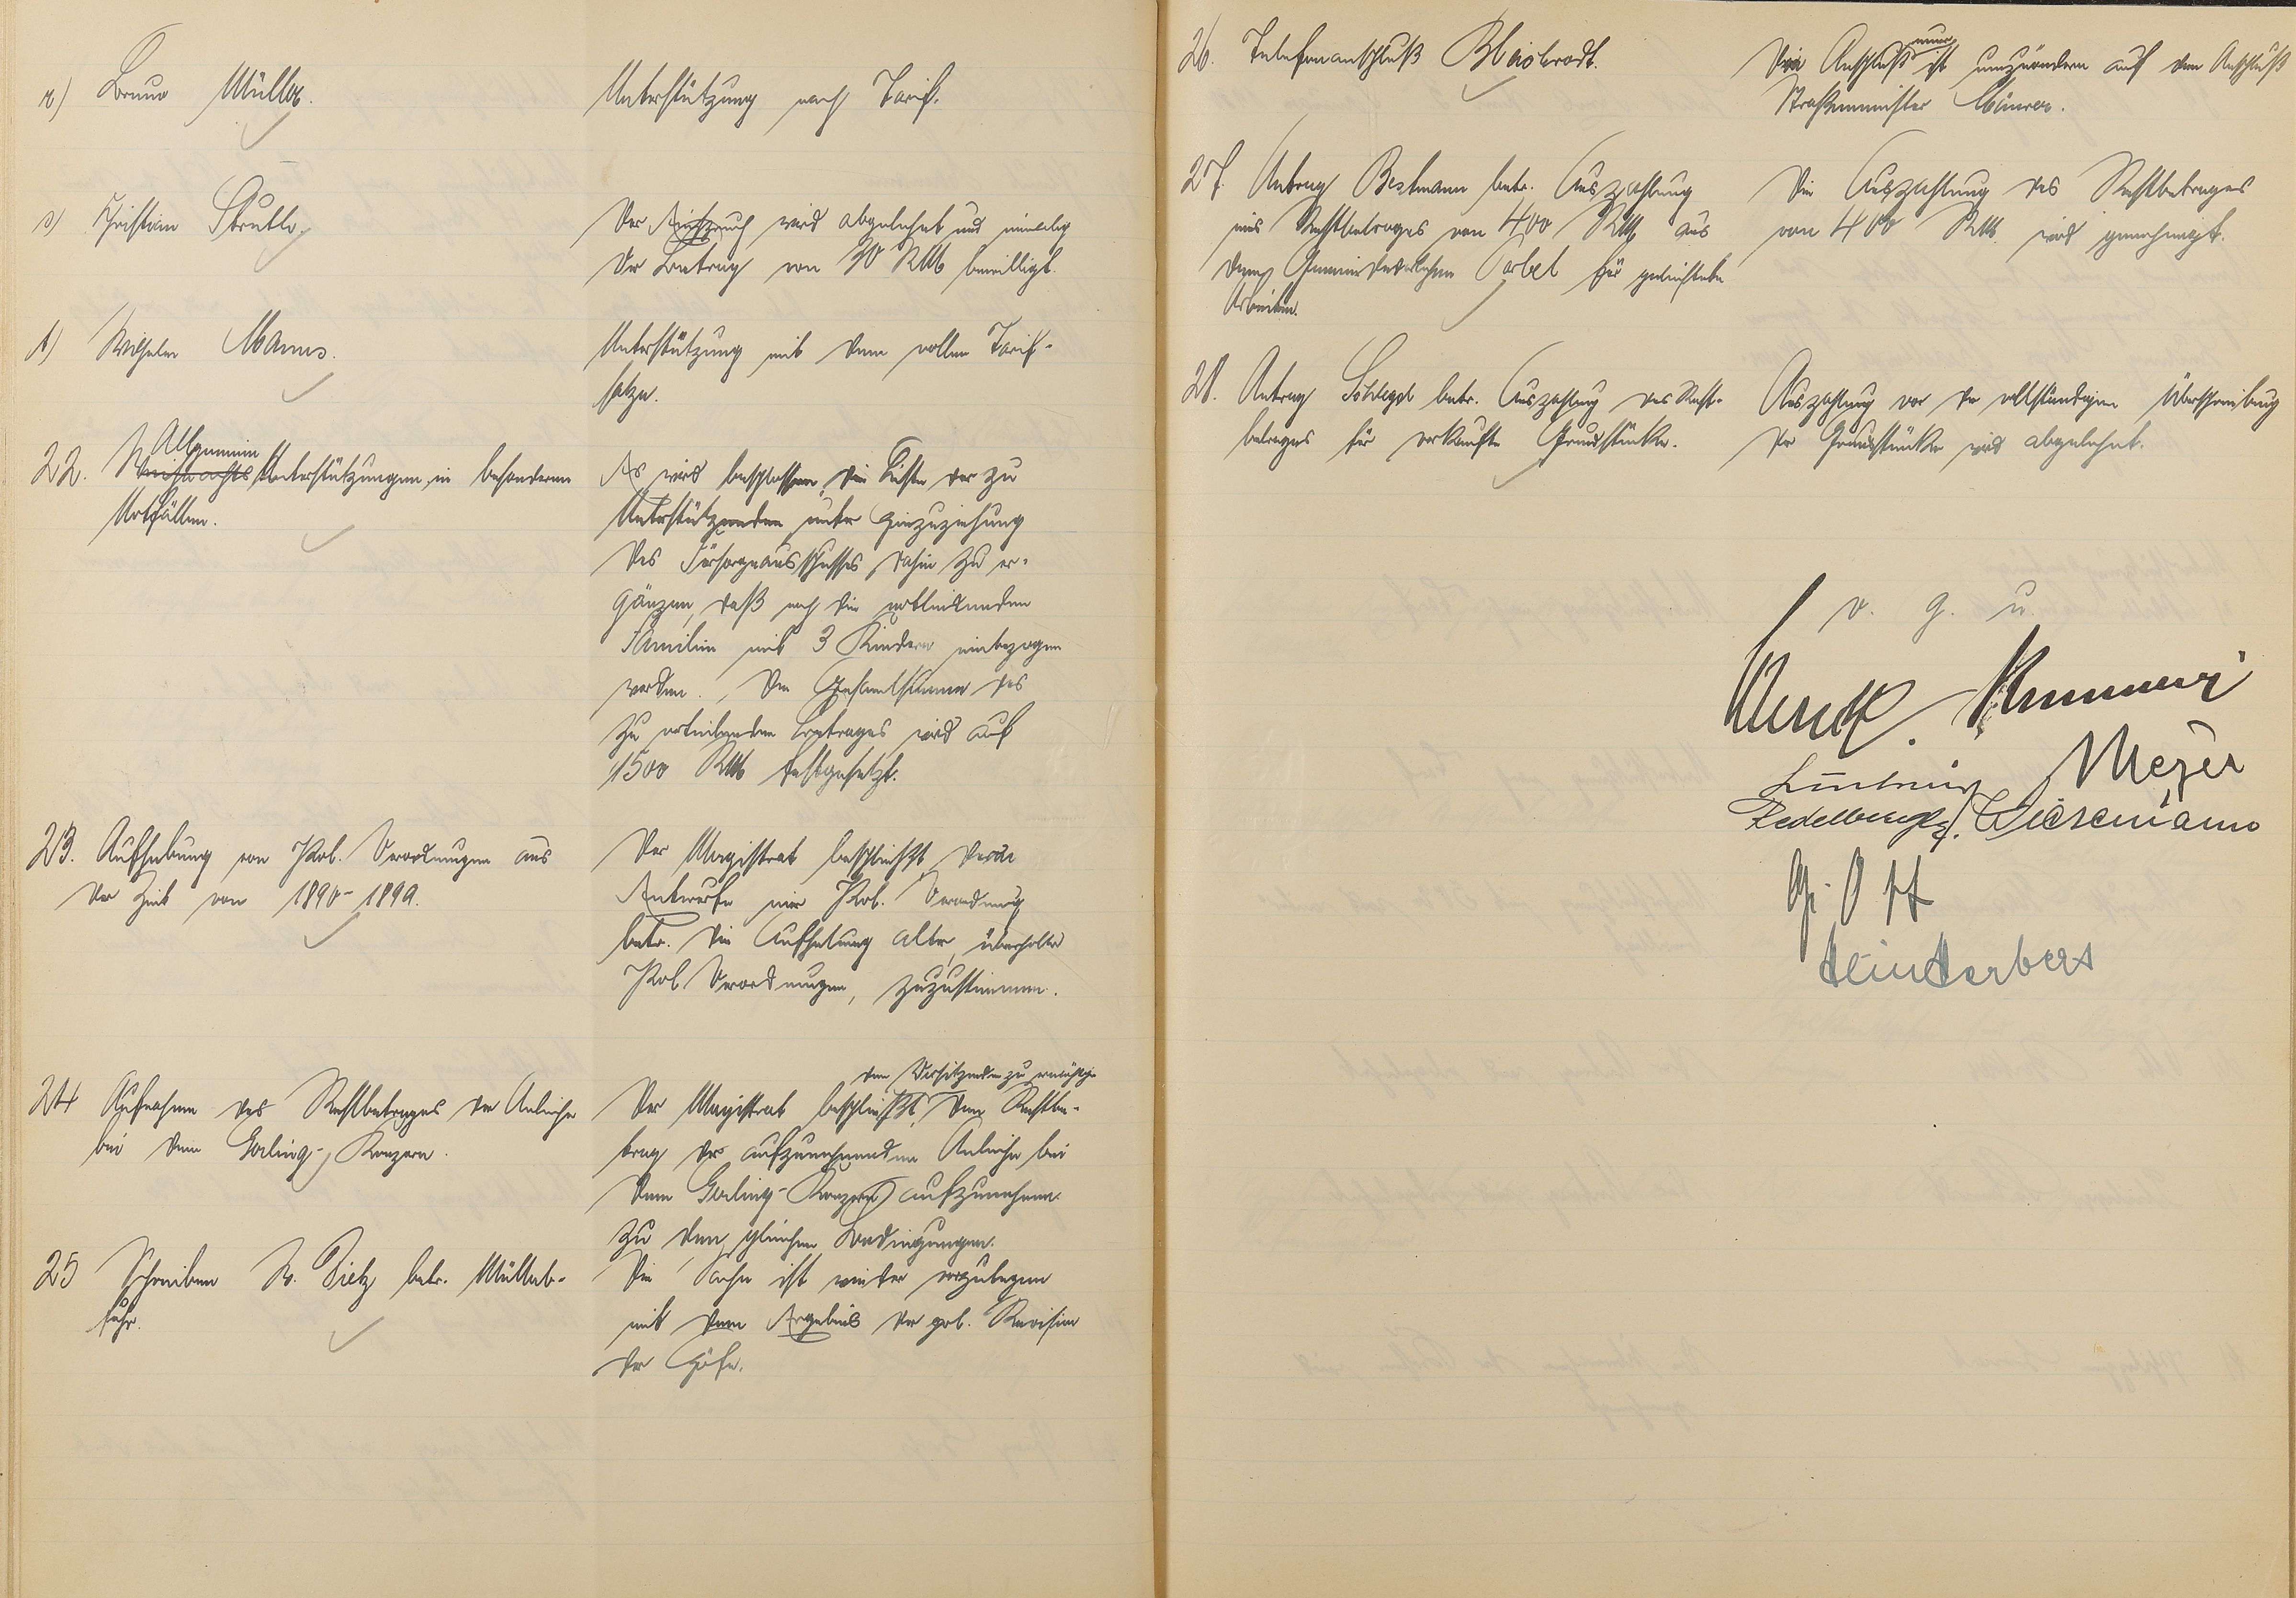 r) Bruno Müller.
Unterstützung nach Tarif.
s) Christian Strutte.
Der Einspruch wird abgelehnt und einmalig
der Betrag von 30 RM bewilligt.
t) Wilhelm Manns.
Unterstützung mit dem vollen Tarif-
satze.
Allgemein
22. Weihnachts Unterstützungen in besonderen
Notfällen.
Es wird beschlossen, die Liste der zu
Unterstützenden unter Hinzuziehung
des Fürsorgeausschusses dahin zu er-
gänzen, daß noch die notleidenden
Familien mit 3 Kindern einbezogen
werden. Die Gesamtsumme des
zu verteilenden Betrages wird auf
1500 RM festgesetzt.
23. Aufhebung von Pol. Verordnungen aus
der Zeit von 1890-1899.
Der Magistrat beschließt, dem
Entwurfe einer Pol. Verordnung
betr. die Aufhebung alter, überholter
Pol. Verordnungen, zuzustimmen.
24 Aufnahme des Restbetrages der Anleihe
bei dem Gerling-Konzern.
den Vorsitzenden zu ermächtigen
Der Magistrat beschließt, den Restbe-
trag der aufzunehmenden Anleihe bei
dem Gerling-Konzern aufzunehmen
zu den gleichen Bedingungen.
25 Schreiben W. Dietz betr. Müllab-
fuhr.
Die Sache ist wieder vorzulegen
mit dem Ergebnis der pol. Revision
der Höfe.
26. Telefonanschluß Blaisbrodt.
nur
Der Anschluß ist umzuändern auf den Anschluß
Straßenmeister Maurer.
27. Antrag Bestmann betr. Auszahlung
eines Restbetrages von 400 RM aus
dem Gemeindedarlehen Corbet für geleistete
Arbeiten.
Die Auszahlung des Restbetrages
von 400 RM wird genehmigt.
28. Antrag Schlegel betr. Auszahlung des Rest-
betrages für verkaufte Grundstücke.
Auszahlung vor der vollständigen Überschreibung
der Grundstücke wird abgelehnt.
v. g. u.
Meyer
Redelberger. Wiesemann
G. Ott